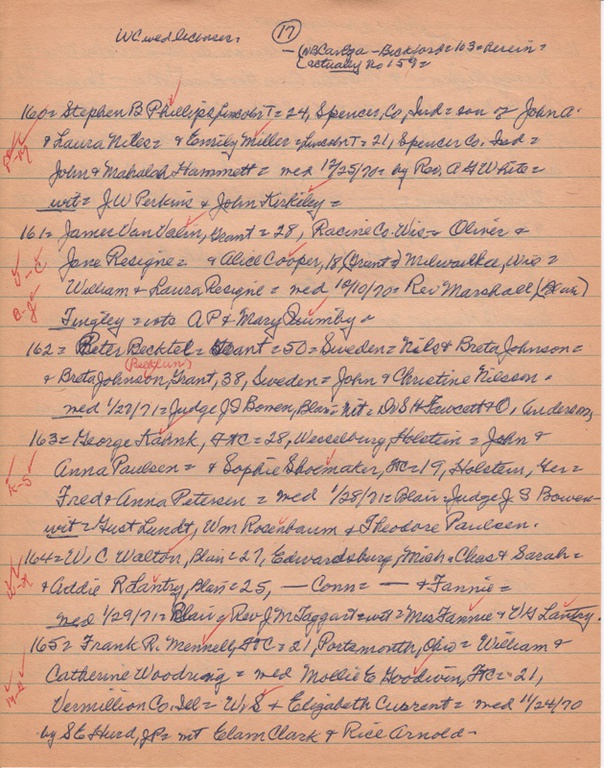 WC wed licenses.
17
(NB Carlza - Beckford = 163 = herein =
(actually No 159 =
160 = Stephen B Phillips, Lincoln T = 24, Spencer, Co, Ind = son of John A.
& Laura Niles = & Emily Miller = Lincoln T = 21, Spencer Co. Ind =
John & Mahalah Hammett = wed 12/25/70 = by Rev. A G White =
wit = J W Perkins & John Kirkiley =
161 = James Van Valin, Grant = 28, Racine Co. Wis = Oliver &
Jane Resigne = & Alice Cooper, 18 (Grant) Milwaulkee, Wis =
William & Laura Resigne = wed 10/10/70 = Rev Marshall (Blair)
Tingley = wits A P & Mary Quimby =
162 = Peter Becktel = Grant = 50 = Sweden = Nils & Breta Johnson =
(Becklun)
& Breta Johnson, Grant, 38, Sweden = John & Christine Nilsson =
wed 1/27/71 = Judge J S Bowen, Blair = Wit = Dr S H Fawcett & O. Anderson,
163 = George Kahnk, FtC = 28, Wesselburg, Holstein = John &
Anna Paulsen = & Sophie Shoemaker, FtC = 19, Holstein, Ger =
Fred & Anna Petersen = wed 1/28/71 = Blair = Judge J. S Bowen =
K-S
wit = Gust Lundt, Wm Rosenbaum & Theodore Paulsen.
164 = W. C Walton, Blair = 27, Edwardsburg, Mich = Chas & Sarah =
& Addie R Lantry, Blair = 25, — Conn = — & Fannie =
wed 1/29/71 = Blair = Rev J McTaggart = wit = Mrs Fannie & V G Lantry.
165 = Frank R. Mennell, FtC = 21, Portsmouth, Ohio = William &
Catherine Woodring = wed Mollie E Goodwin, FtC = 21,
Vermillion Co. Ill = W. S & Elizabeth Current = wed 11/24/70
by S E Hurd, J.P. = wit Elam Clark & Rice Arnold -